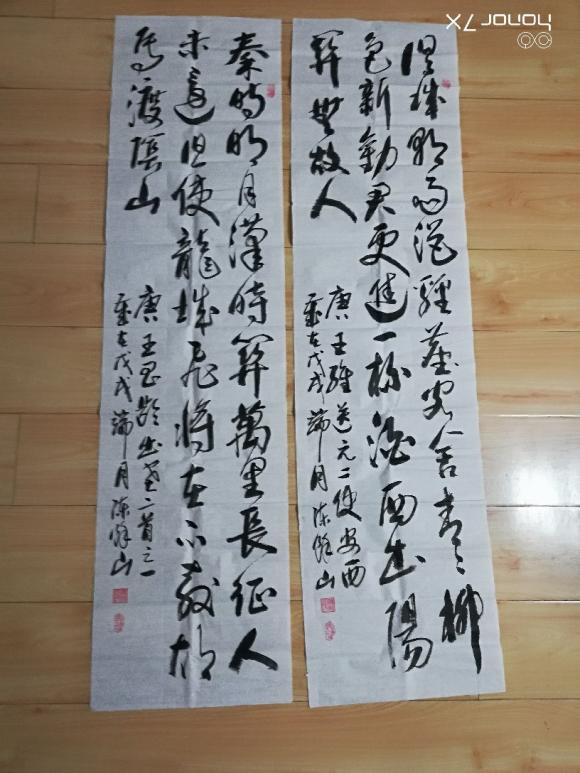 渭城朝雨浥輕塵客舍青〻柳
色新勸君更進一杯酒西出陽
關無故人
唐王維送元二使安西
歲在戊戌端月陳山
秦時明月漢時關萬里長征人
未還但使龍城飛將在不教胡
馬渡陰山
唐王昌齡出塞二首之一
歲在戊戌端月陳山
honor 7X